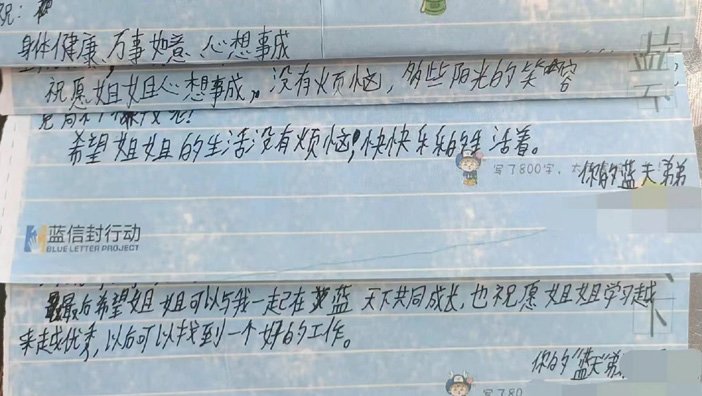 祝:
身体健康,万事如意,心想事成
祝愿姐姐心想事成,没有烦恼,多些阳光的笑容
希望姐姐的生活没有烦恼,快快乐乐的生活着。
写了800字,
你的蓝天弟弟
蓝信封行动
BLUE LETTER PROJECT
最后希望姐姐可以与我一起在蓝天下共同成长,也祝愿姐姐学习越
来越优秀,以后可以找到一个好的工作。
你的"蓝天"弟
写了80
蓝
天
下